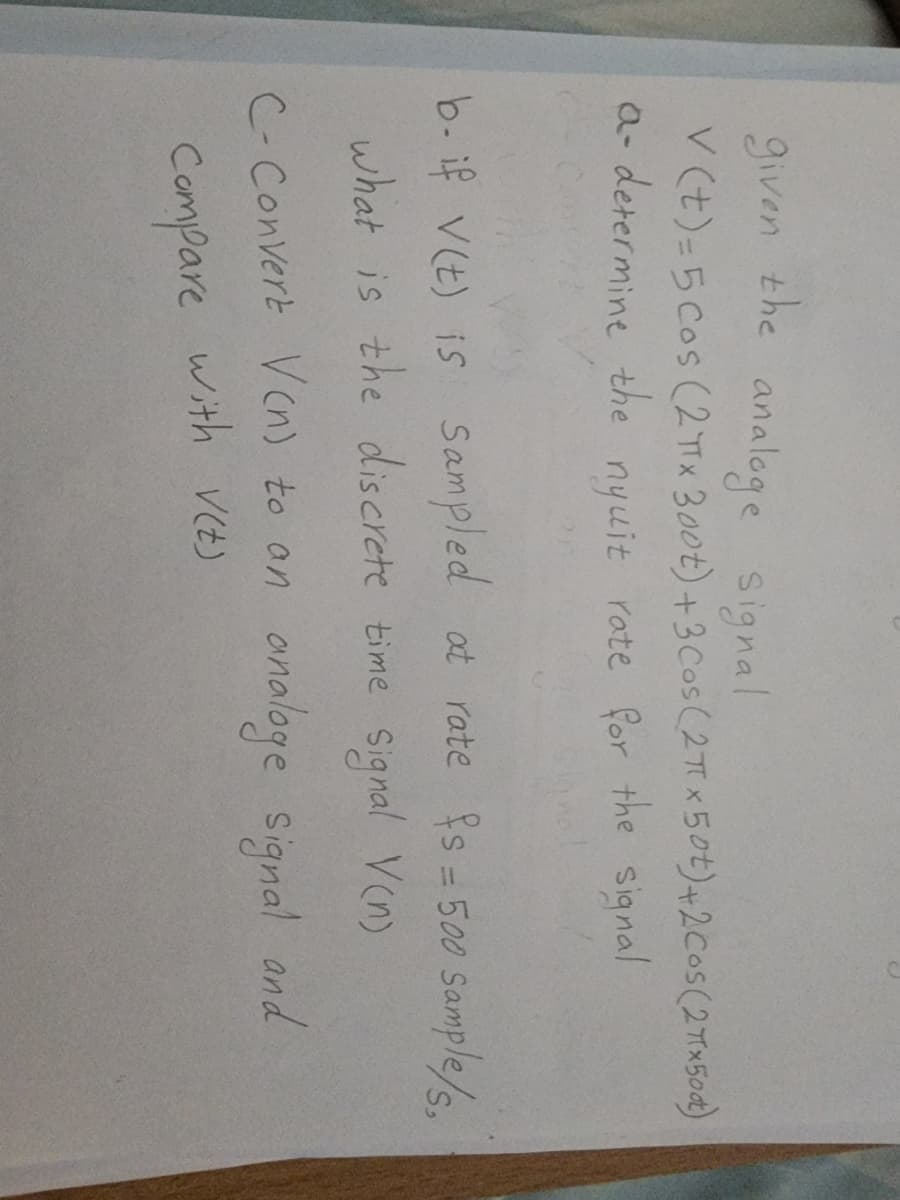 given the analoge signal
v(t)=5cos(2πx300t)+3cos(2πx50t)+2cos(2πx500t)
a- determine the nyuit rate for the signal
b- if v(t) is sampled at rate fs=500 sample/s,
what is the discrete time signal V(n)
C- Convert V(n) to an analoge signal and
Compare with V(t)